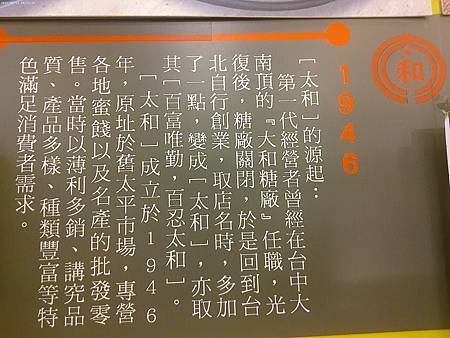 和
1946
[太和]的源起:
第一代經營者曾經在台中大
南頂的『大和糖廠』任職,光
復後,糖廠關閉,於是回到台
北自行創業,取店名時,多加
了一點,變成[太和],亦取
其[百富唯勤,百忍太和]。
[太和]成立於1946
年,原址於舊太平市場,專營
各地蜜餞以及名產的批發零
售。當時以薄利多銷、講究品
質、產品多樣、種類豐富等特
色滿足消費者需求。